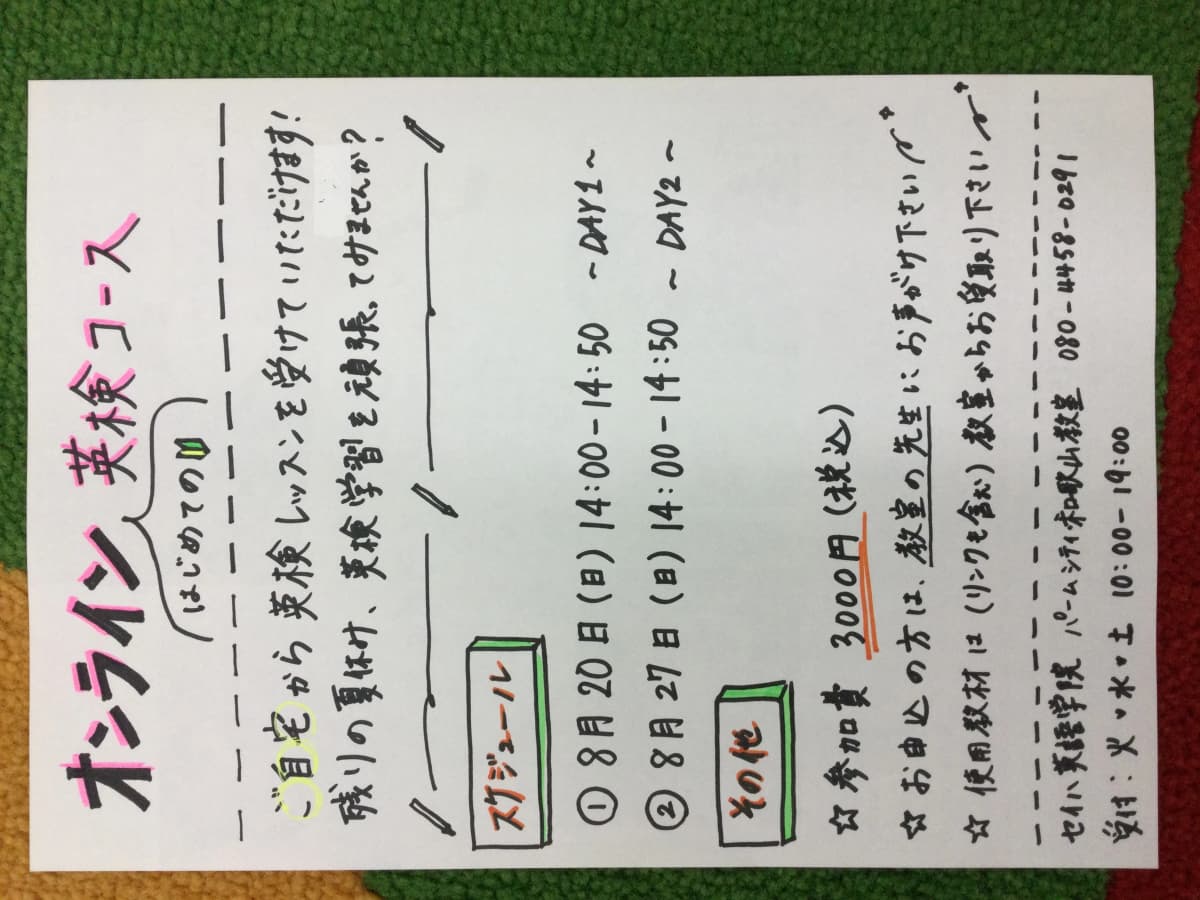 オンライン 英検コース
はじめての
ご自宅から英検レッスンを受けていただけます!
残りの夏休み、英検学習を頑張ってみませんか?
スケジュール
① 8月20日(日) 14:00-14:50 ~DAY1~
② 8月27日(日) 14:00-14:50 ~DAY2~
その他
☆ 参加費 3000円(税込)
☆ お申込の方は、教室の先生にお声がけ下さい
☆ 使用教材は(リンクも含む)教室からお受取り下さい
セイハ英語学院 パームシティ和歌山教室 080-4458-0291
受付:火・水・土 10:00-19:00